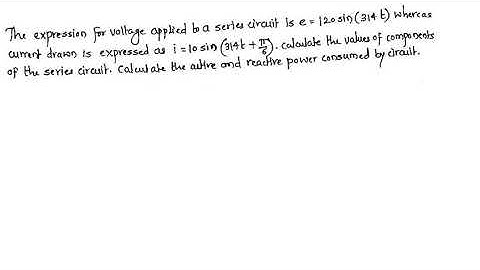 The expression for voltage applied to a series circuit is e = 120 sin (314 t) whereas
current drawn is expressed as i = 10 sin (314t + π/6). calculate the values of components
of the series circuit. Calculate the active and reactive power consumed by circuit.